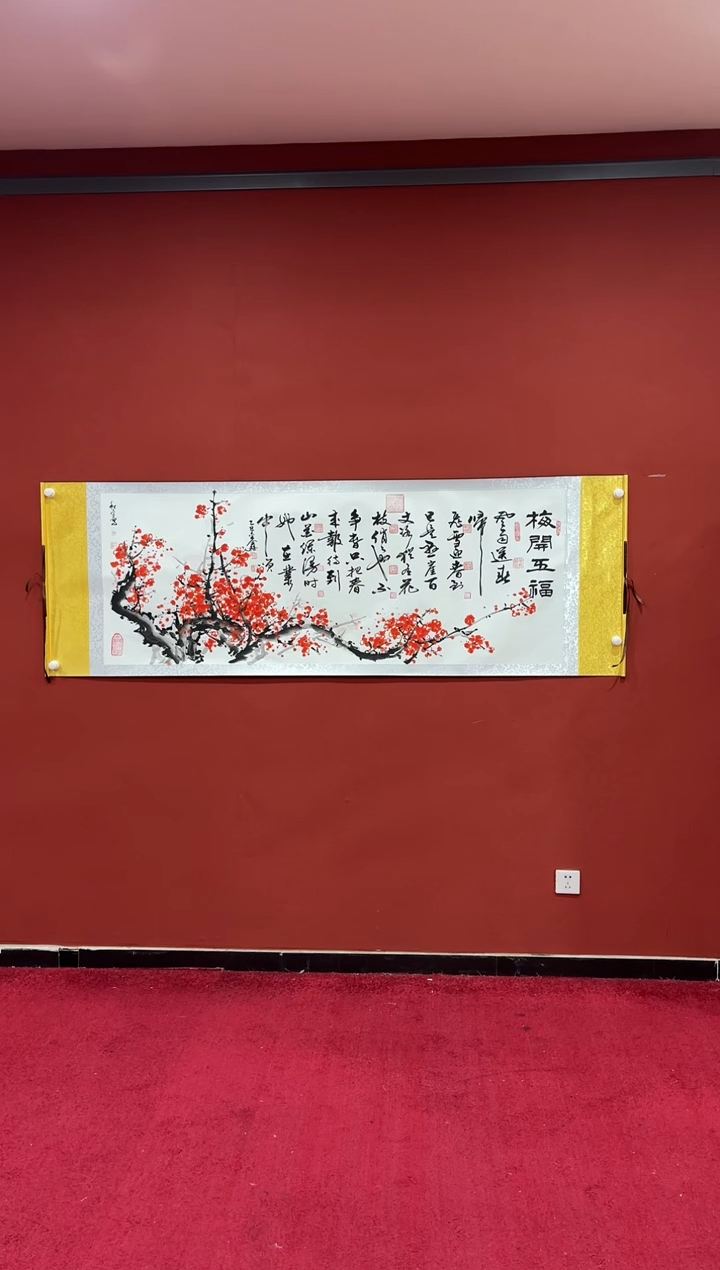 梅開五福
風雨送春
歸
飛雪迎春到
已是懸崖百
丈冰猶有花
枝俏俏也不
争春只把春
来報待到
山花爛漫時
她在叢
中笑